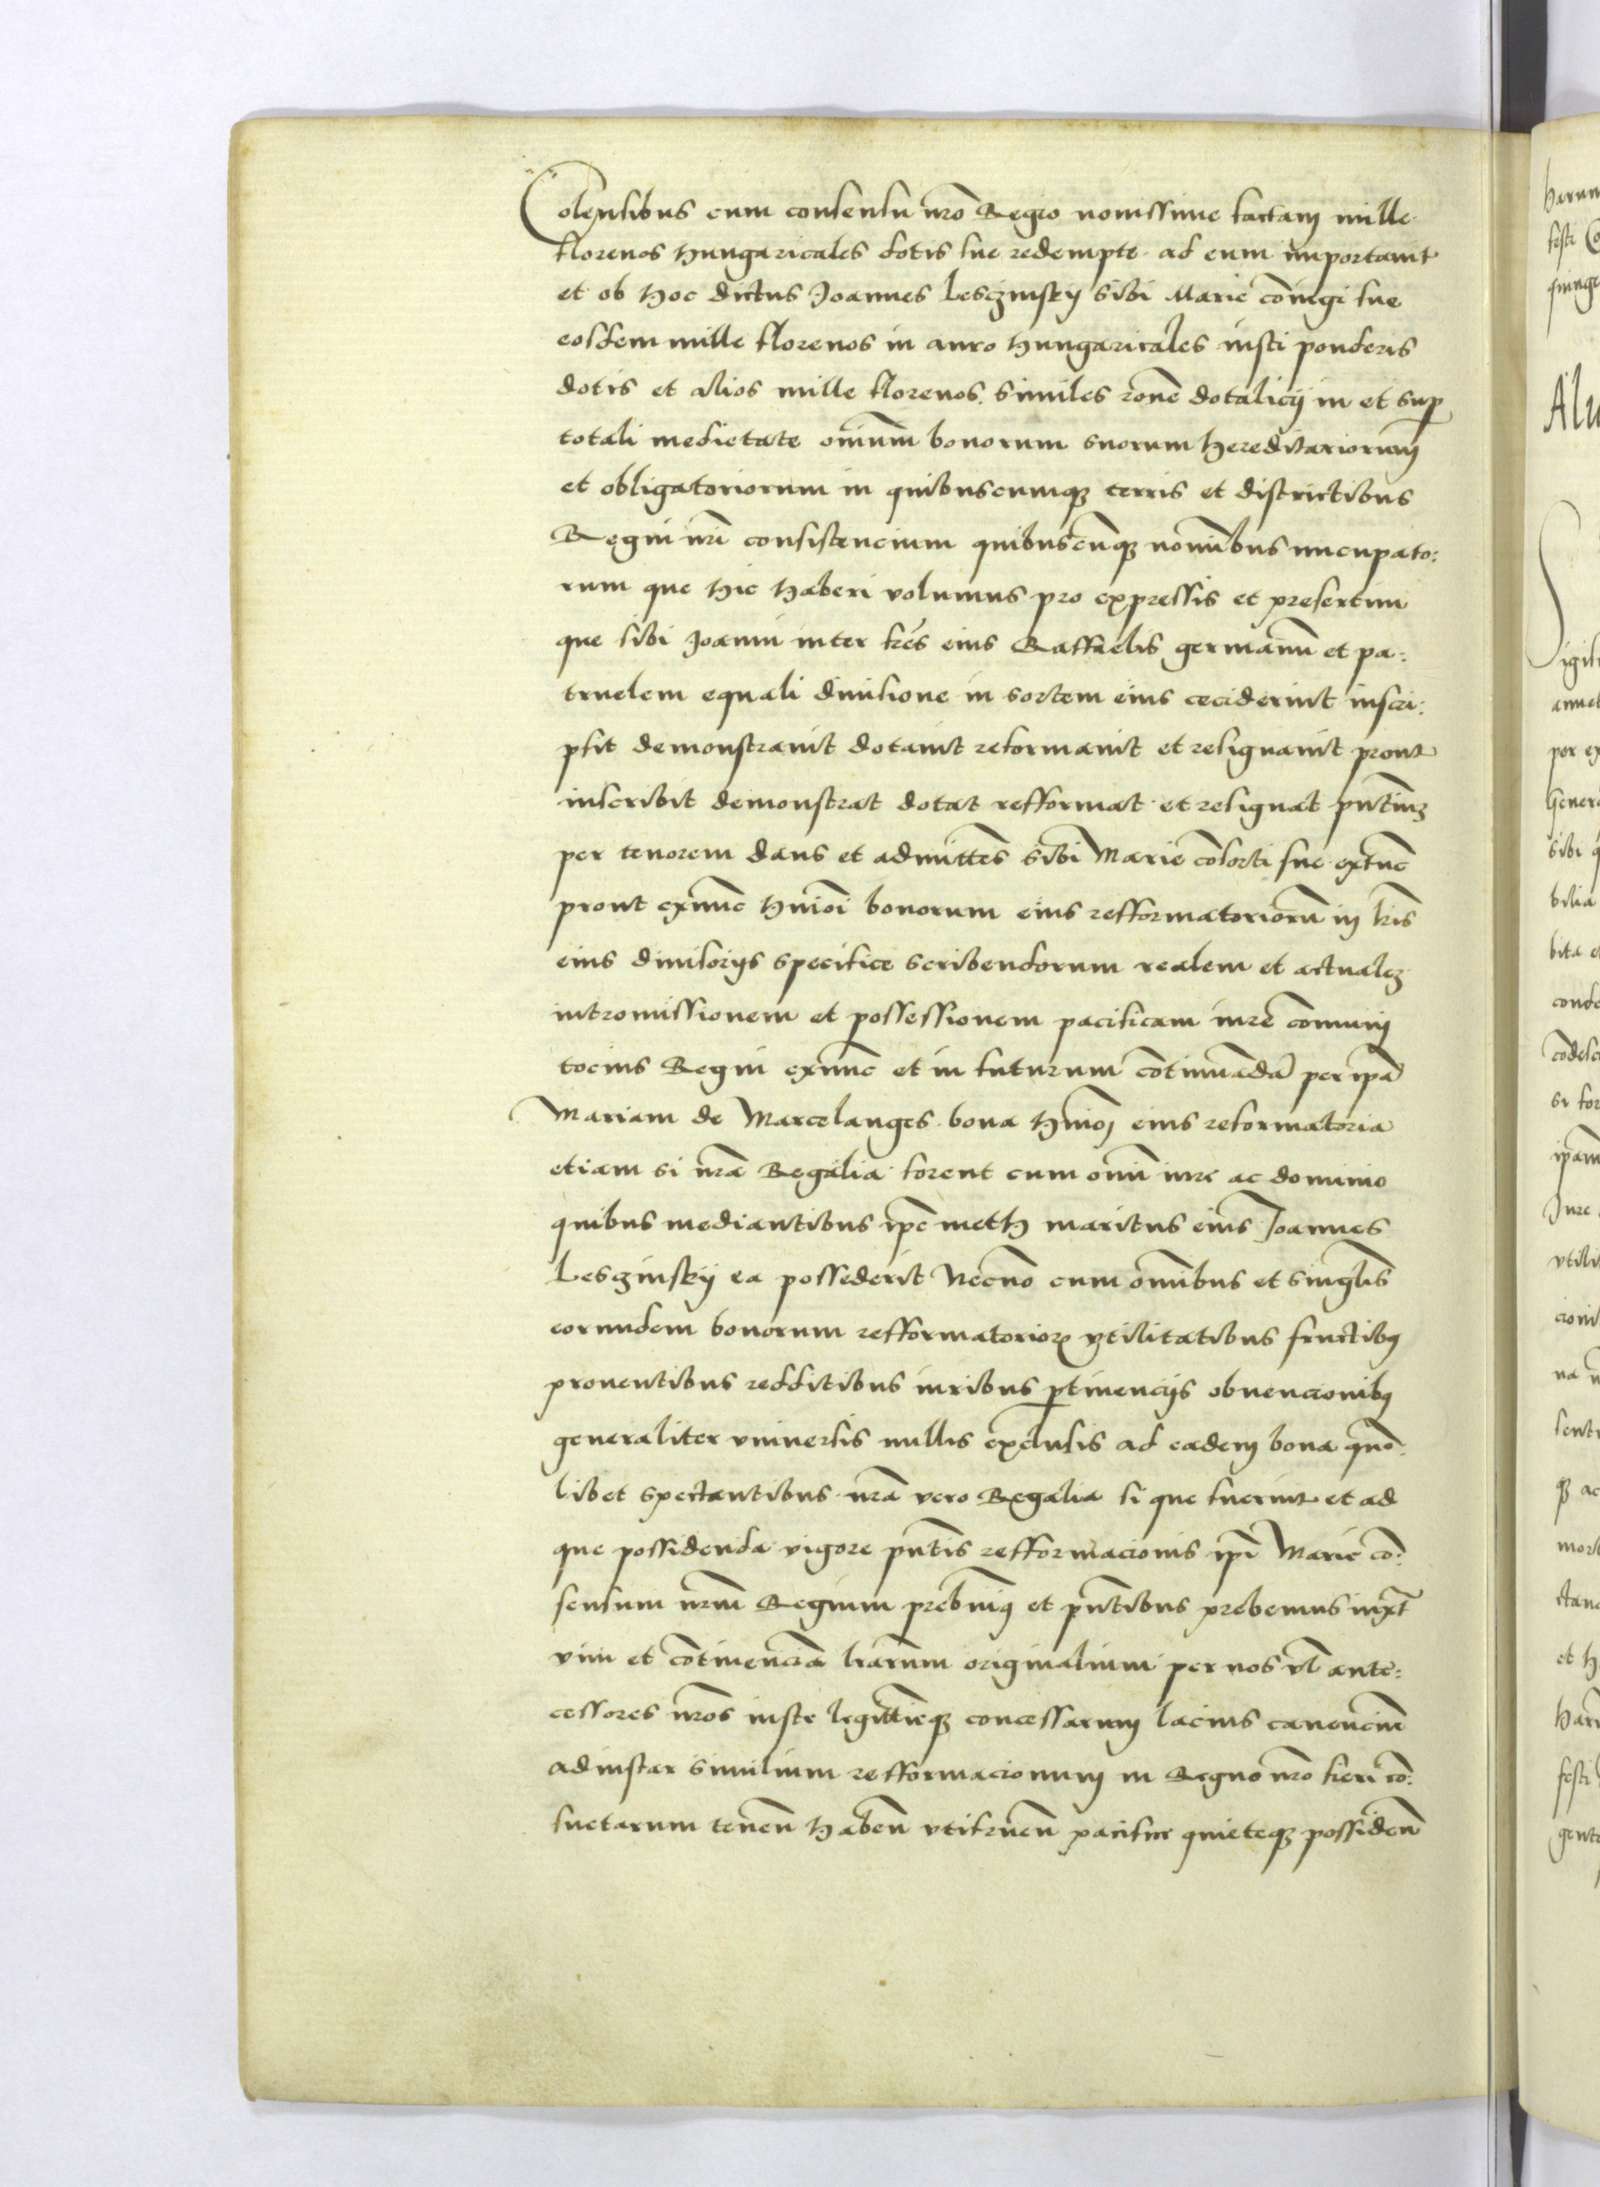 Colensibus cum consensu nro Regio novissime factam mille
florenos Hungaricales dotis sue redempte ad eum importavit
et ob hoc dictus Joannes Lesczinskij sibi Marie coniugi sue
eosdem mille florenos in auro Hungaricales iusti ponderis
dotis et alios mille florenos similes rone dotalicij in et sup
totali medietate omnium bonorum suorum hereditariorum
et obligatoriorum in quibuscumq terris et districtibus
Regni nri consistencium quibuscunq nominibus nuncupato:
rum que hic haberi volumus pro expressis et presertim
que sibi Joanni inter fres eius Raffaelis germanum et pa:
truelem equali divisione in sortem eius ceciderint inscri:
psit demonstravit dotavit reformavit et resignavit prout
inscribit demonstrat dotat refformat et resignat pntium
per tenorem dans et admittes sibi Marie cosorti sue extuc
prout exnunc huiusmoi bonorum eius refformatorioru in lris
eius divisorijs specifice scribendorum realem et actualem
intromissionem et possessionem pacificam iure comuni
tocius Regni exnunc et in futurum cotinuada per ipa
Mariam de Marcelanges bona hmoi eius reformatoria
etiam si nra Regalia forent cum omi iure ac dominio
quibus mediantibus ipe meth maritus eius Joannes
Lesczinskij ea possederit Necno cum omibus et singlis
eorundem bonorum refformatorior utilitatibus fructibus
proventibus redditibus iuribus ptinencijs obvencionibus
generaliter universis nullis exclusis ad eadem bona quo:
libet spectantibus nra vero Regalia si que fuerint et ad
que possidenda vigore pntis refformacionis ipi Marie co:
sensum nrm Regium prebuimus et pntibus prebemus iuxt
vim et cotinencia lrarum originalium per nos vl ante:
cessores nros iuste legittieq concessarum lacius canencium
adinstar similium refformacionum in Regno nro fieri co:
suetarum tenen haben utifruen pacifice quieteq possiden